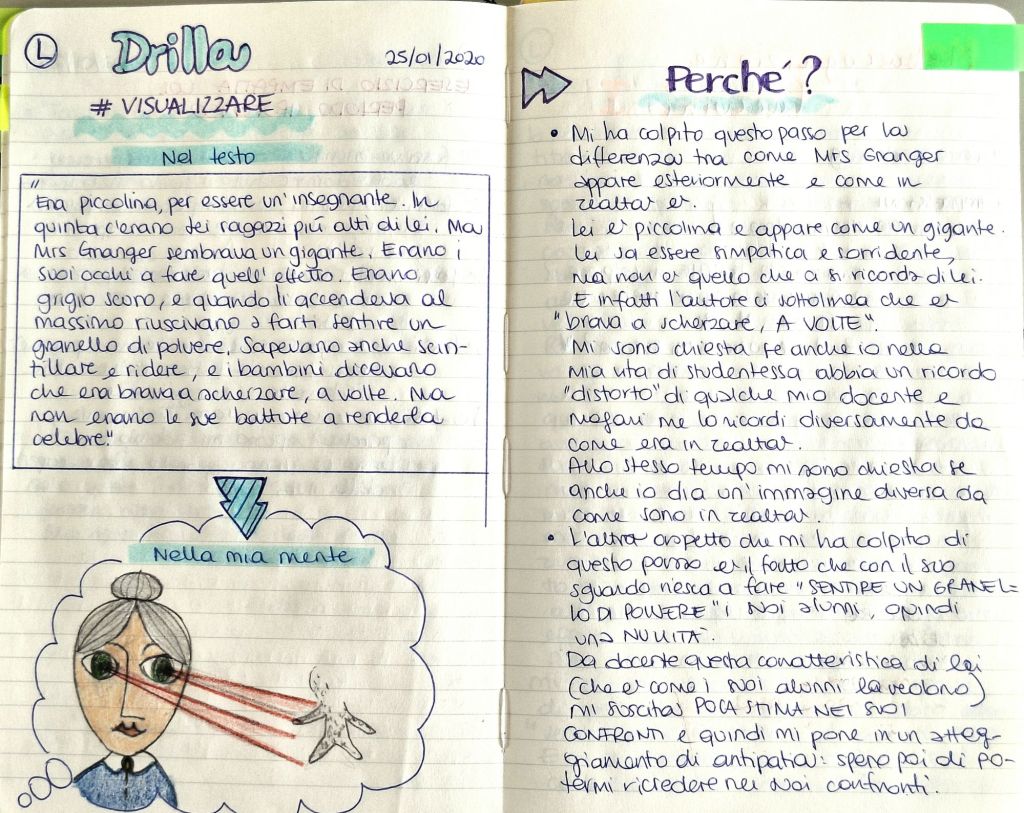 L
Drilla
25/01/2020
# VISUALIZZARE
Nel testo
"Era piccolina, per essere un'insegnante. In
quinta c'erano dei ragazzi più alti di lei. Ma
Mrs Granger sembrava un gigante. Erano i
suoi occhi a fare quell'effetto. Erano
grigio scuro, e quando li accendeva al
massimo riuscivano a farti sentire un
granello di polvere. Sapevano anche scin-
tillare e ridere, e i bambini dicevano
che era brava a scherzare, a volte. Ma
non erano le sue battute a renderla
celebre."
Nella mia mente
Perché?
• Mi ha colpito questo passo per la
differenza tra come Mrs Granger
appare esteriormente e come in
realtà è.
Lei è piccolina e appare come un gigante.
Lei sa essere simpatica e sorridente,
ma non è quello che a si ricorda di lei.
E infatti l'autore ci sottolinea che è
"brava a scherzare, A VOLTE".
Mi sono chiesta se anche io nella
mia vita di studentessa abbia un ricordo
"distorto" di qualche mio docente e
magari me lo ricordi diversamente da
come era in realtà.
Allo stesso tempo mi sono chiesta se
anche io dia un'immagine diversa da
come sono in realtà.
• L'altro aspetto che mi ha colpito di
questo passo è il fatto che con il suo
sguardo riesca a fare "SENTIRE UN GRANEL=
LO DI POLVERE" i suoi alunni, quindi
una NULLITÀ.
Da docente questa caratteristica di lei
(che è come i suoi alunni la vedono)
mi suscita POCA STIMA NEI SUOI
CONFRONTI e quindi mi pone in un atteg-
giamento di antipatia: spero poi di po-
termi ricredere nei suoi confronti.